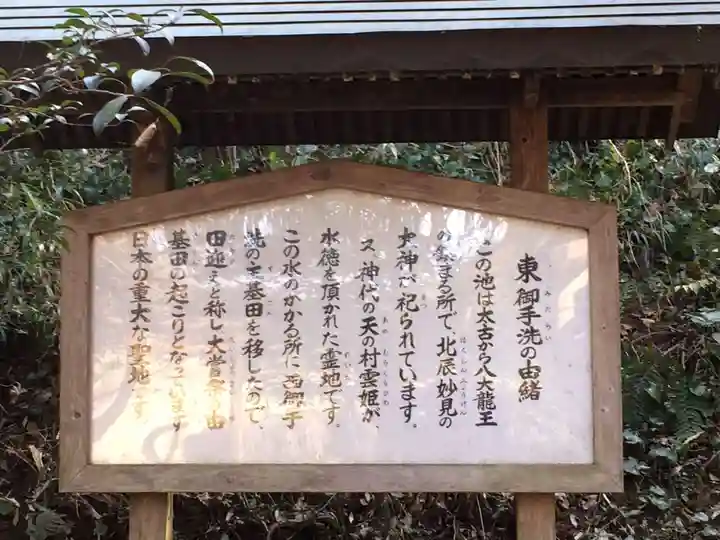 東御手洗の由緒
この池は太古から八大龍王
の鎮まる所で、北辰妙見の
大神が祀られています。
又、神代の天の村雲姫が、
水徳を頂かれた霊地です。
この水のかかる所に西御手
洗の下基田を移したので、
田迎えと称し大嘗祭の由
基田の起こりとなっています
日本の重大な聖地です。